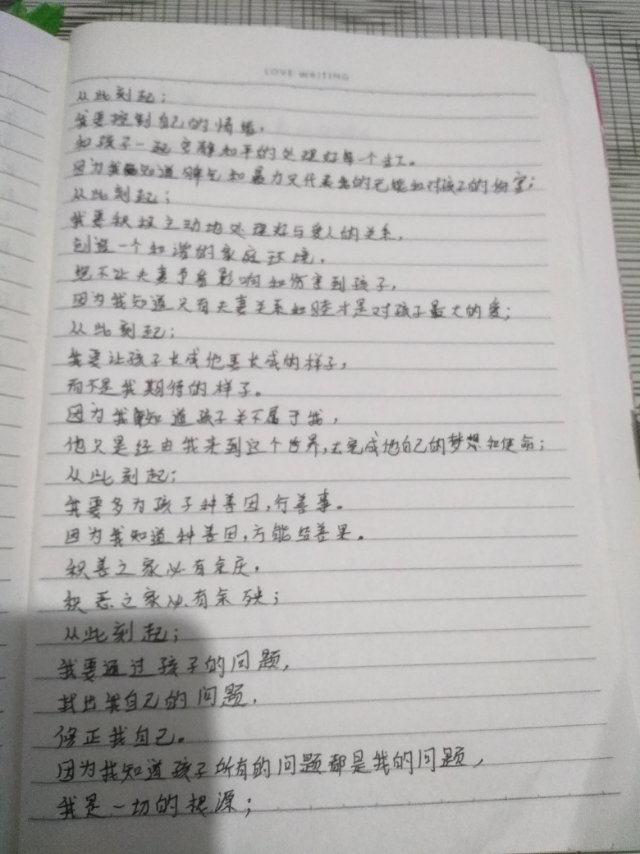 LOVE WRITING
从此刻起；
我要控制自己的情绪，
和孩子一起安静和平的处理好每一个当下。
因为我知道脾气和暴力只代表我的无能和对孩子的伤害；
从此刻起；
我要积极主动地处理好与爱人的关系，
创造一个和谐的家庭环境，
绝不让夫妻矛盾影响和伤害到孩子，
因为我知道只有夫妻关系和睦才是对孩子最大的爱；
从此刻起；
我要让孩子长成他要长成的样子，
而不是我期待的样子。
因为我知道孩子并不属于我，
他只是经由我来到这个世界，去完成他自己的梦想和使命；
从此刻起；
我要多为孩子种善因，行善事。
因为我知道种善因，方能结善果。
积善之家必有余庆，
积恶之家必有余殃；
从此刻起；
我要通过孩子的问题，
找出我自己的问题，
修正我自己。
因为我知道孩子所有的问题都是我的问题，
我是一切的根源；